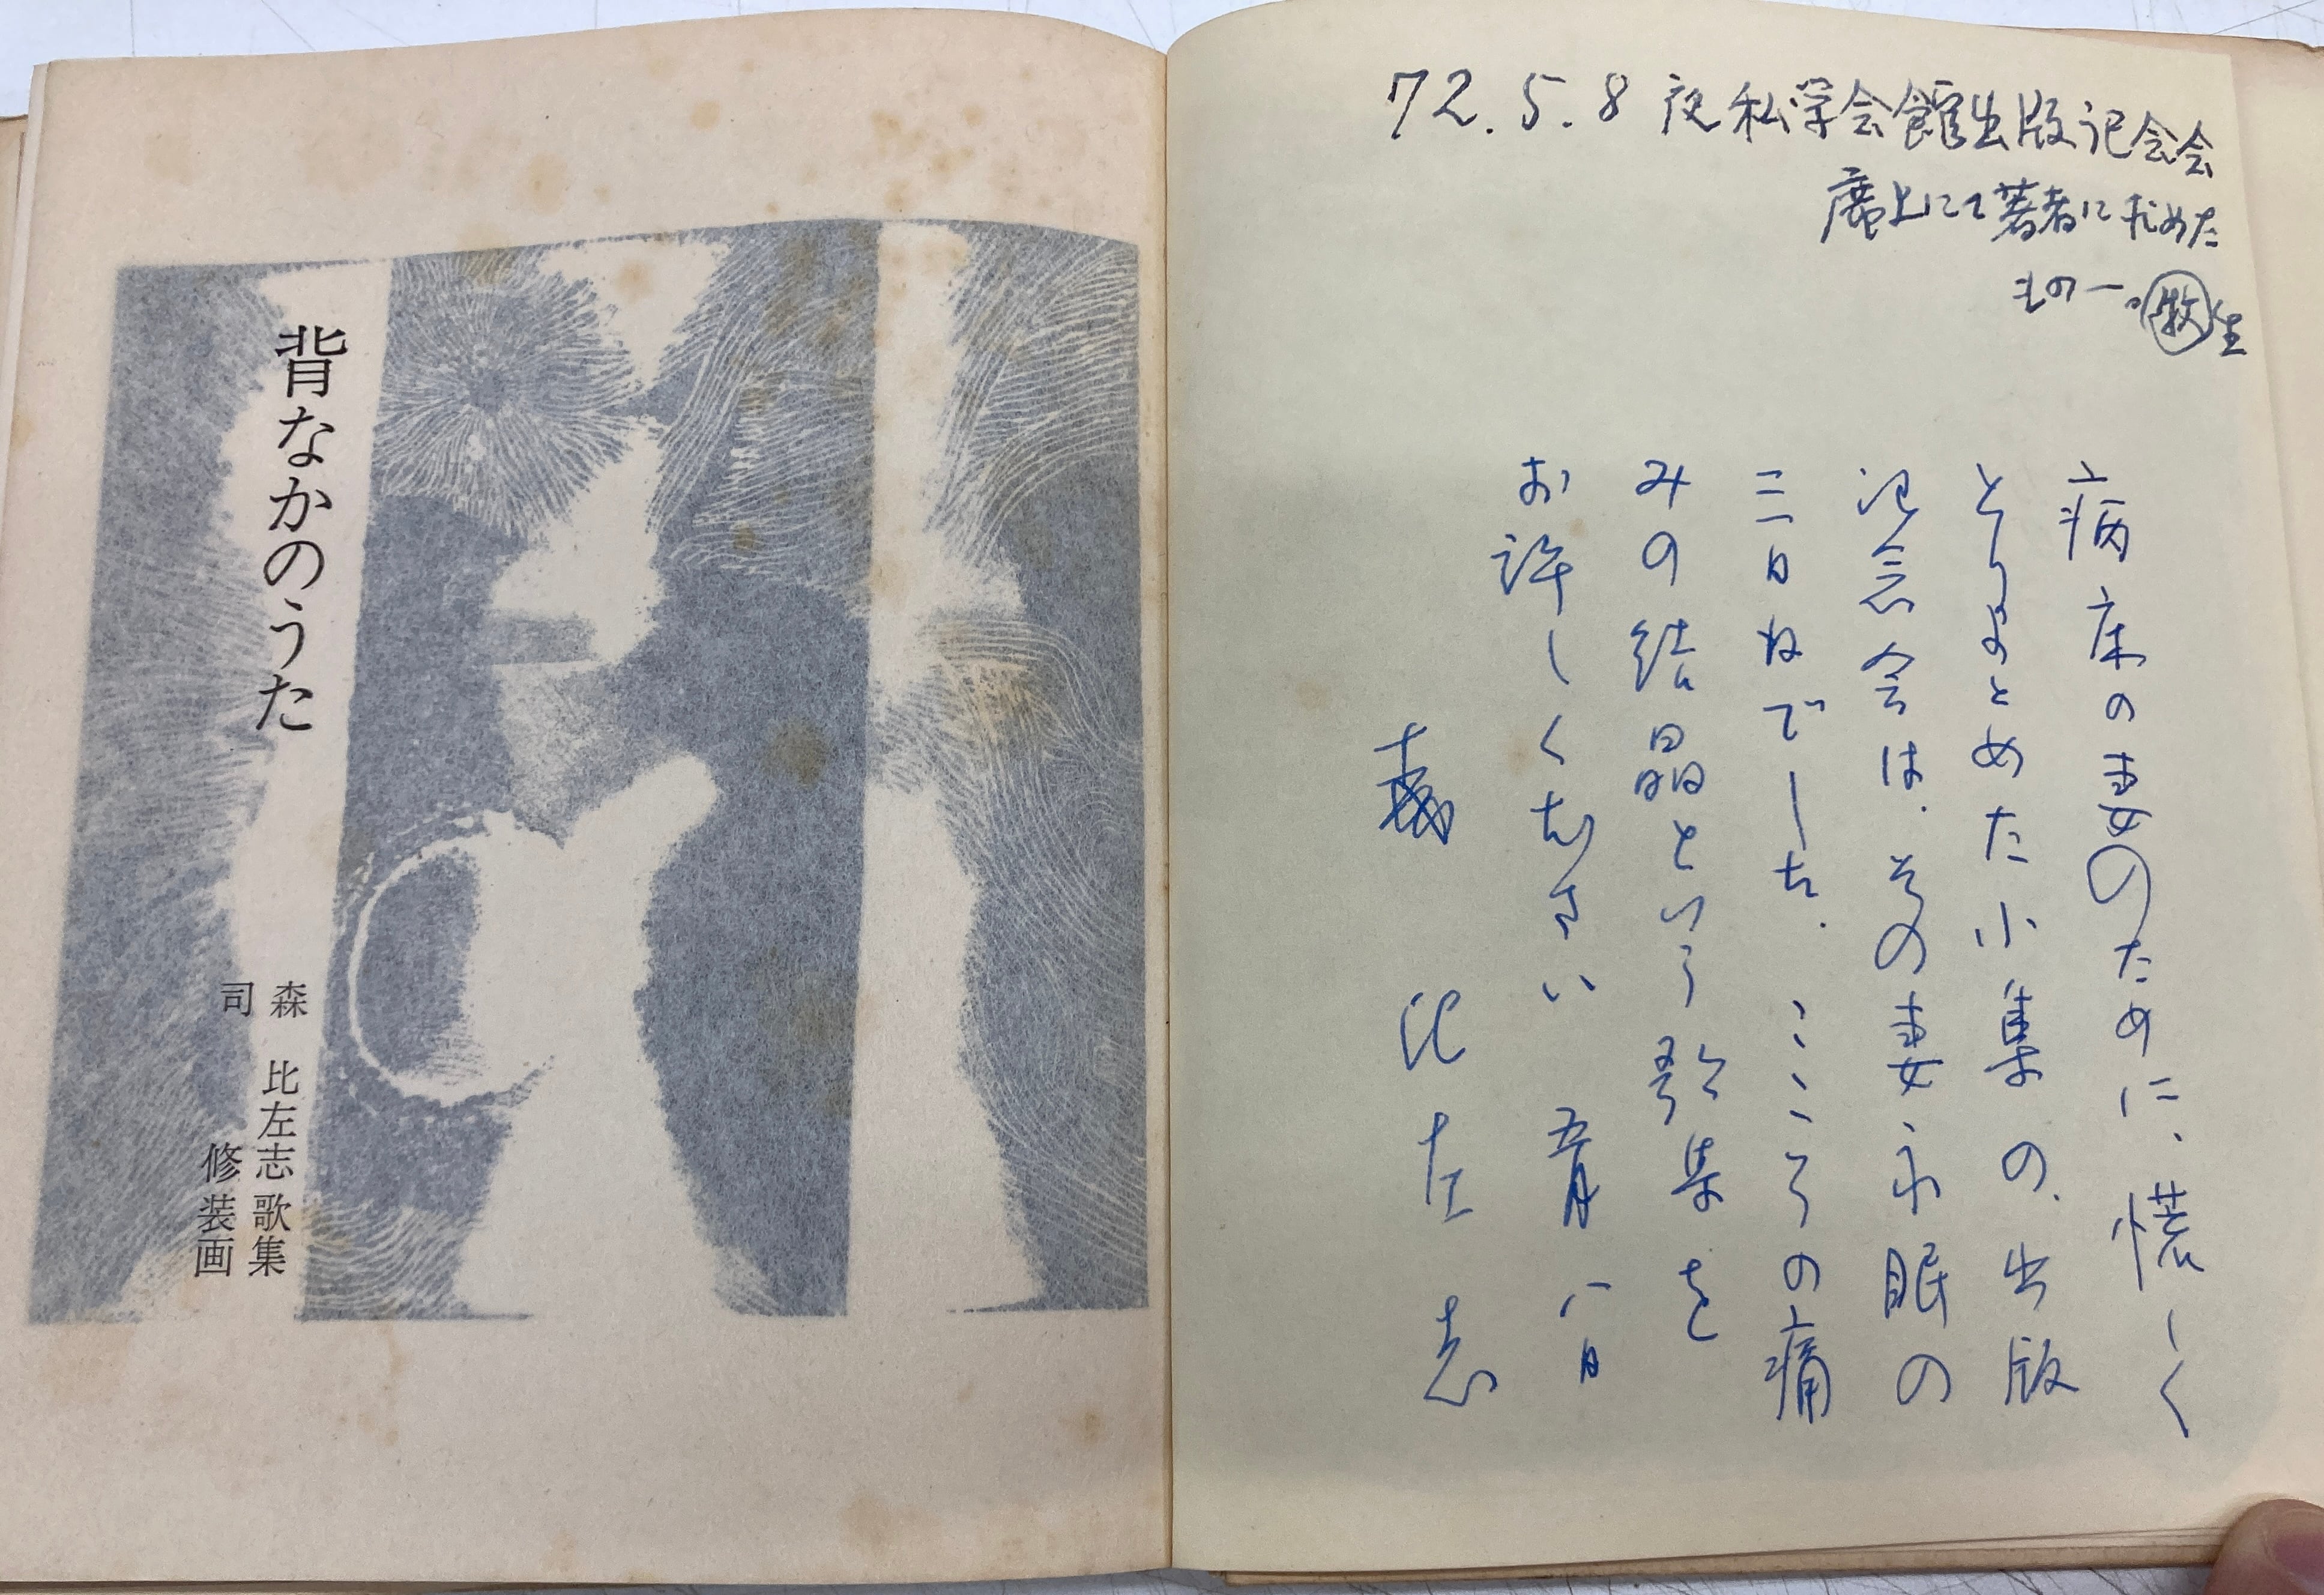 72.5.8 夜私学会館出版記念会
席上にて著者に求めた
もの一。牧生
病床の妻のために、慌しく
とりまとめた小集の、出版
記念会は、その妻不眠の
三日ねでした。こころの痛
みの結晶という歌集を
お許しください 五月八日
森 比左志
背なかのうた
森 比左志歌集
司 修装画